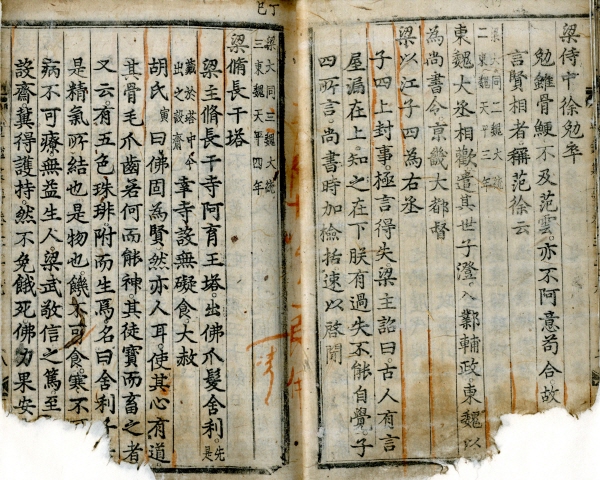 梁侍中徐勉卒
勉雖骨鯁不及范雲亦不阿意苟合故
言賢相者稱范徐云
梁大同二魏大統
二東魏天平三年
東魏大丞相歡遣其世子澄入鄴輔政東魏以
為尚書令京畿大都督
梁以江子四為右丞
子四上封事極言得失梁主詔曰古人有言
屋漏在上知之在下朕有過失不能自覺子
四所言尚書時加檢括速以啓聞
丁巳
梁大同三魏大統
三東魏天平四年
梁脩長干塔
梁主脩長干寺阿育王塔出佛爪髮舍利先是
藏於塔中今
出之設齋
幸寺設無礙食大赦
胡氏寅曰佛固為賢然亦人耳使其心有道
其骨毛爪齒若何而能神其徒寶而畜之者
又云有五色珠琲附而生焉名曰舍利
是精氣所結也是物也饑不可食寒不
病不可療無益生人梁武敬信之篤至
設齋冀得護持然不免餓死佛力果安